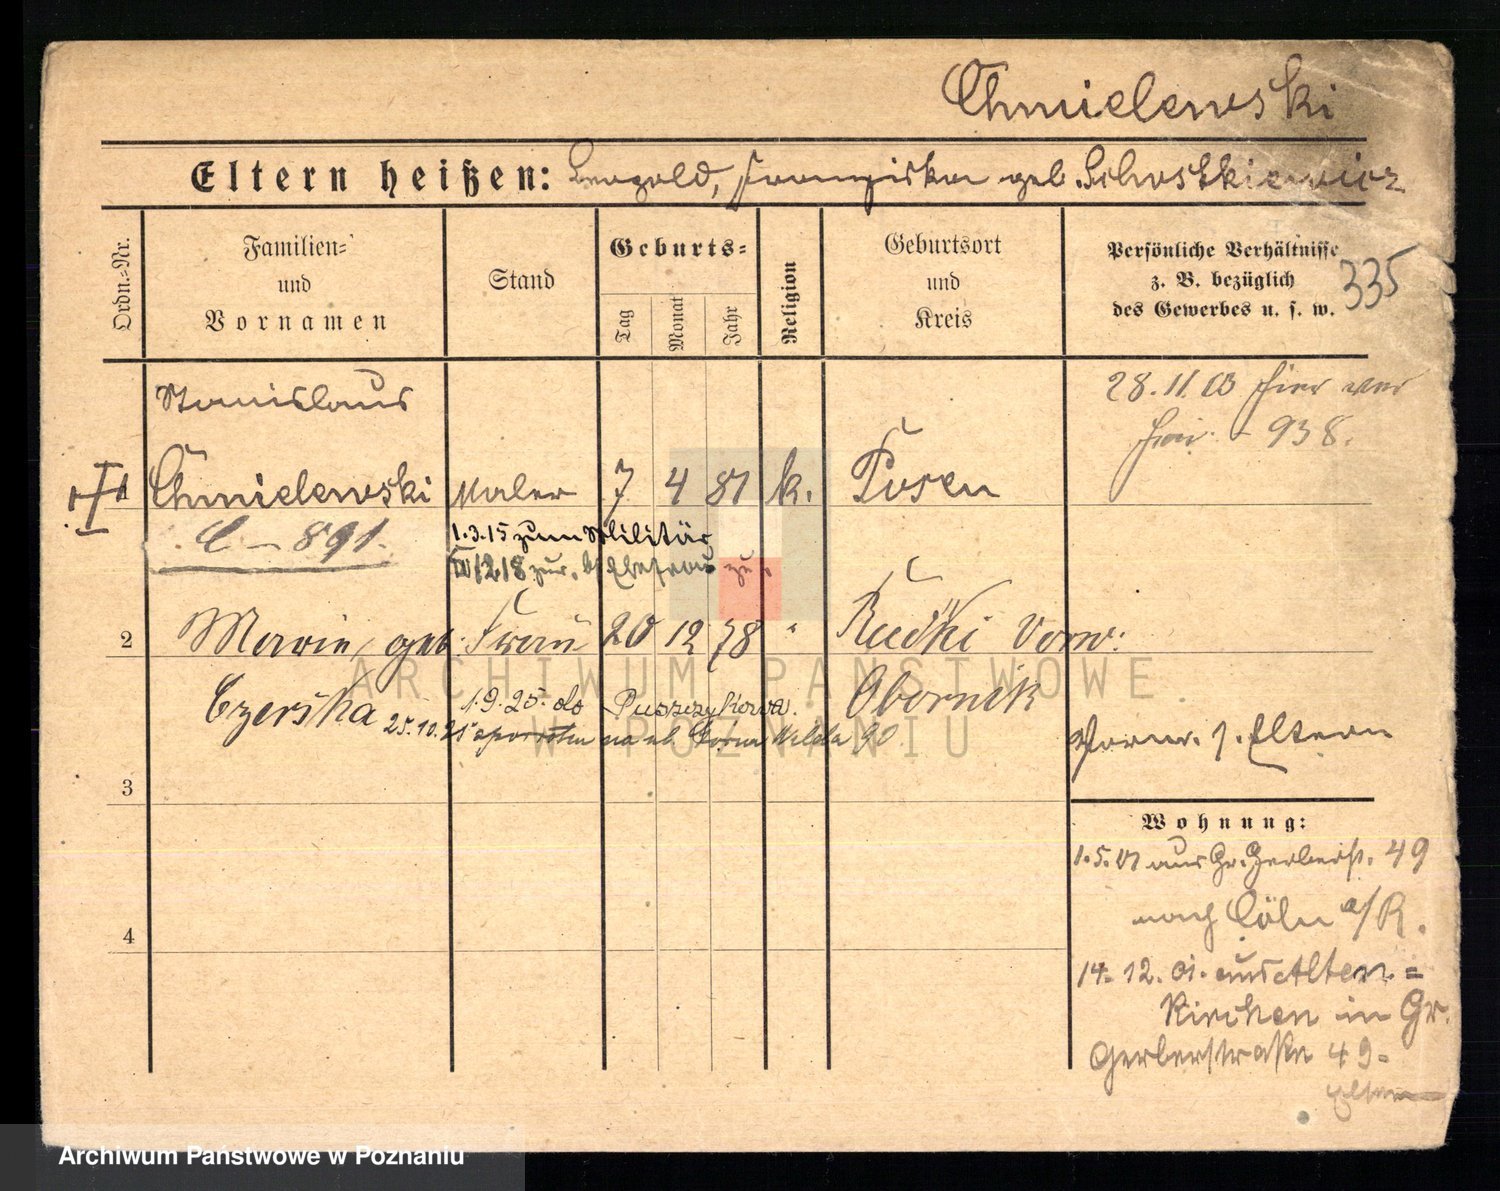 Chmielewski
Eltern heißen: Leopold, Franziska geb.
Ordn.-Nr.
Familien- und Vornamen
Stand
Geburts-
Tag
Monat
Jahr
Religion
Geburtsort und Kreis
Persönliche Verhältnisse
z. B. bezüglich
des Gewerbes u. s. w.
335
Stanislaus
28.11.03 hier
938.
1 Chmielewski Maler 7 4 81 k. Posen
C – 891.
1.3.15 zum Militär
zur. Ehefrau zu
2 Marie, geb. Frau 20 12 78 " Rudki Vorw:
Czerska
1.9.25. do Puszczykowa.
Obornik
25.10.25 nach Górna Wilda 90
Vorw. s. Eltern
3
Wohnung:
1.5.01 aus Gr. Gerberst. 49
nach Cöln a/R.
4
14.12.01. aus Alten=
Kirchen in Gr.
Gerberstraße 49-
Eltern
ARCHIWUM PAŃSTWOWE
W POZNANIU
Archiwum Państwowe w Poznaniu